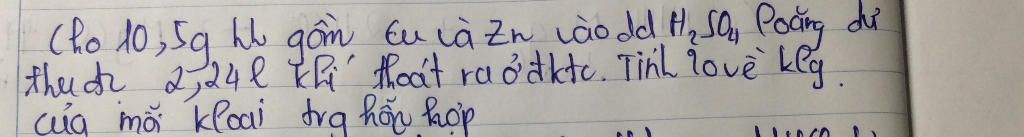 Cho 10,5g hh gồm Cu và Zn vào dd H₂SO₄ loãng dư
thu đc 2,24l khí thoát ra ở đktc. Tính % về klg.
của mỗi kloại trg hỗn hợp